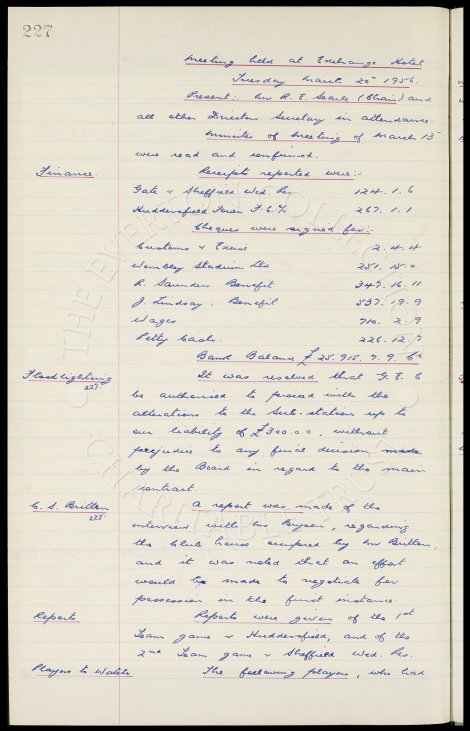 227
Meeting held at Exchange Hotel
Tuesday March 20th 1956.
Present:- Mr R. E. Searle (Chair) and
all other Directors. Secretary in attendance.
Minutes of Meeting of March 13th
were read and confirmed.
Finance. Receipts reported were:-
Gate v Sheffield Wed. Res 124. 1. 6
Huddersfield Town F.C. 267. 1. 1
Cheques were signed for:-
Customs & Excise 2. 4. 4
Wembley Stadium Ltd 251. 15. 0
R. Saunders. Benefit 347. 16. 11
J. Lindsay. Benefit 537. 19. 9
Wages 710. 2. 9
Petty Cash. 226. 12. 7
Bank Balance £ 25.915. 7. 9. Cr
Floodlighting It was resolved that G.E.C
227. be authorised to proceed with the
alterations to the Sub-station up to
our liability of £300.0.0, without
prejudice to any final decision made
by the Board in regard to the main
contract.
C. S. Britton A report was made of the
225. interview with Mr Bryson, regarding
the Club house occupied by Mr Britton,
and it was noted that an effort
would be made to negotiate for
possession in the first instance.
Reports Reports were given of the 1st
Team game v Huddersfield, and of the
2nd Team game v Sheffield Wed. Res.
Players to Watch. The following players, who had
THE EVERTON COLLECTION
CHARITABLE TRUST